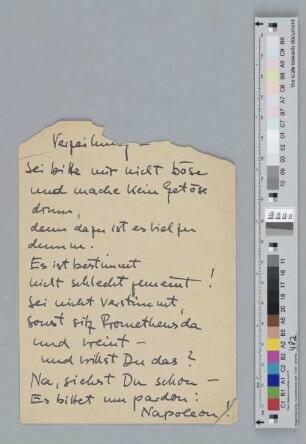 Verzeihung –
Sei bitte mir nicht böse
und mache kein Getöse
drum,
denn dazu ist es viel zu
dumm.
Es ist bestimmt
nicht schlecht gemeint!
Sei nicht verstimmt,
sonst sitzt Prometheus da
und weint –
und willst Du das?
Na, siehst Du schon –
Es bittet um pardon:
Napoleon!
The scale towards document
482